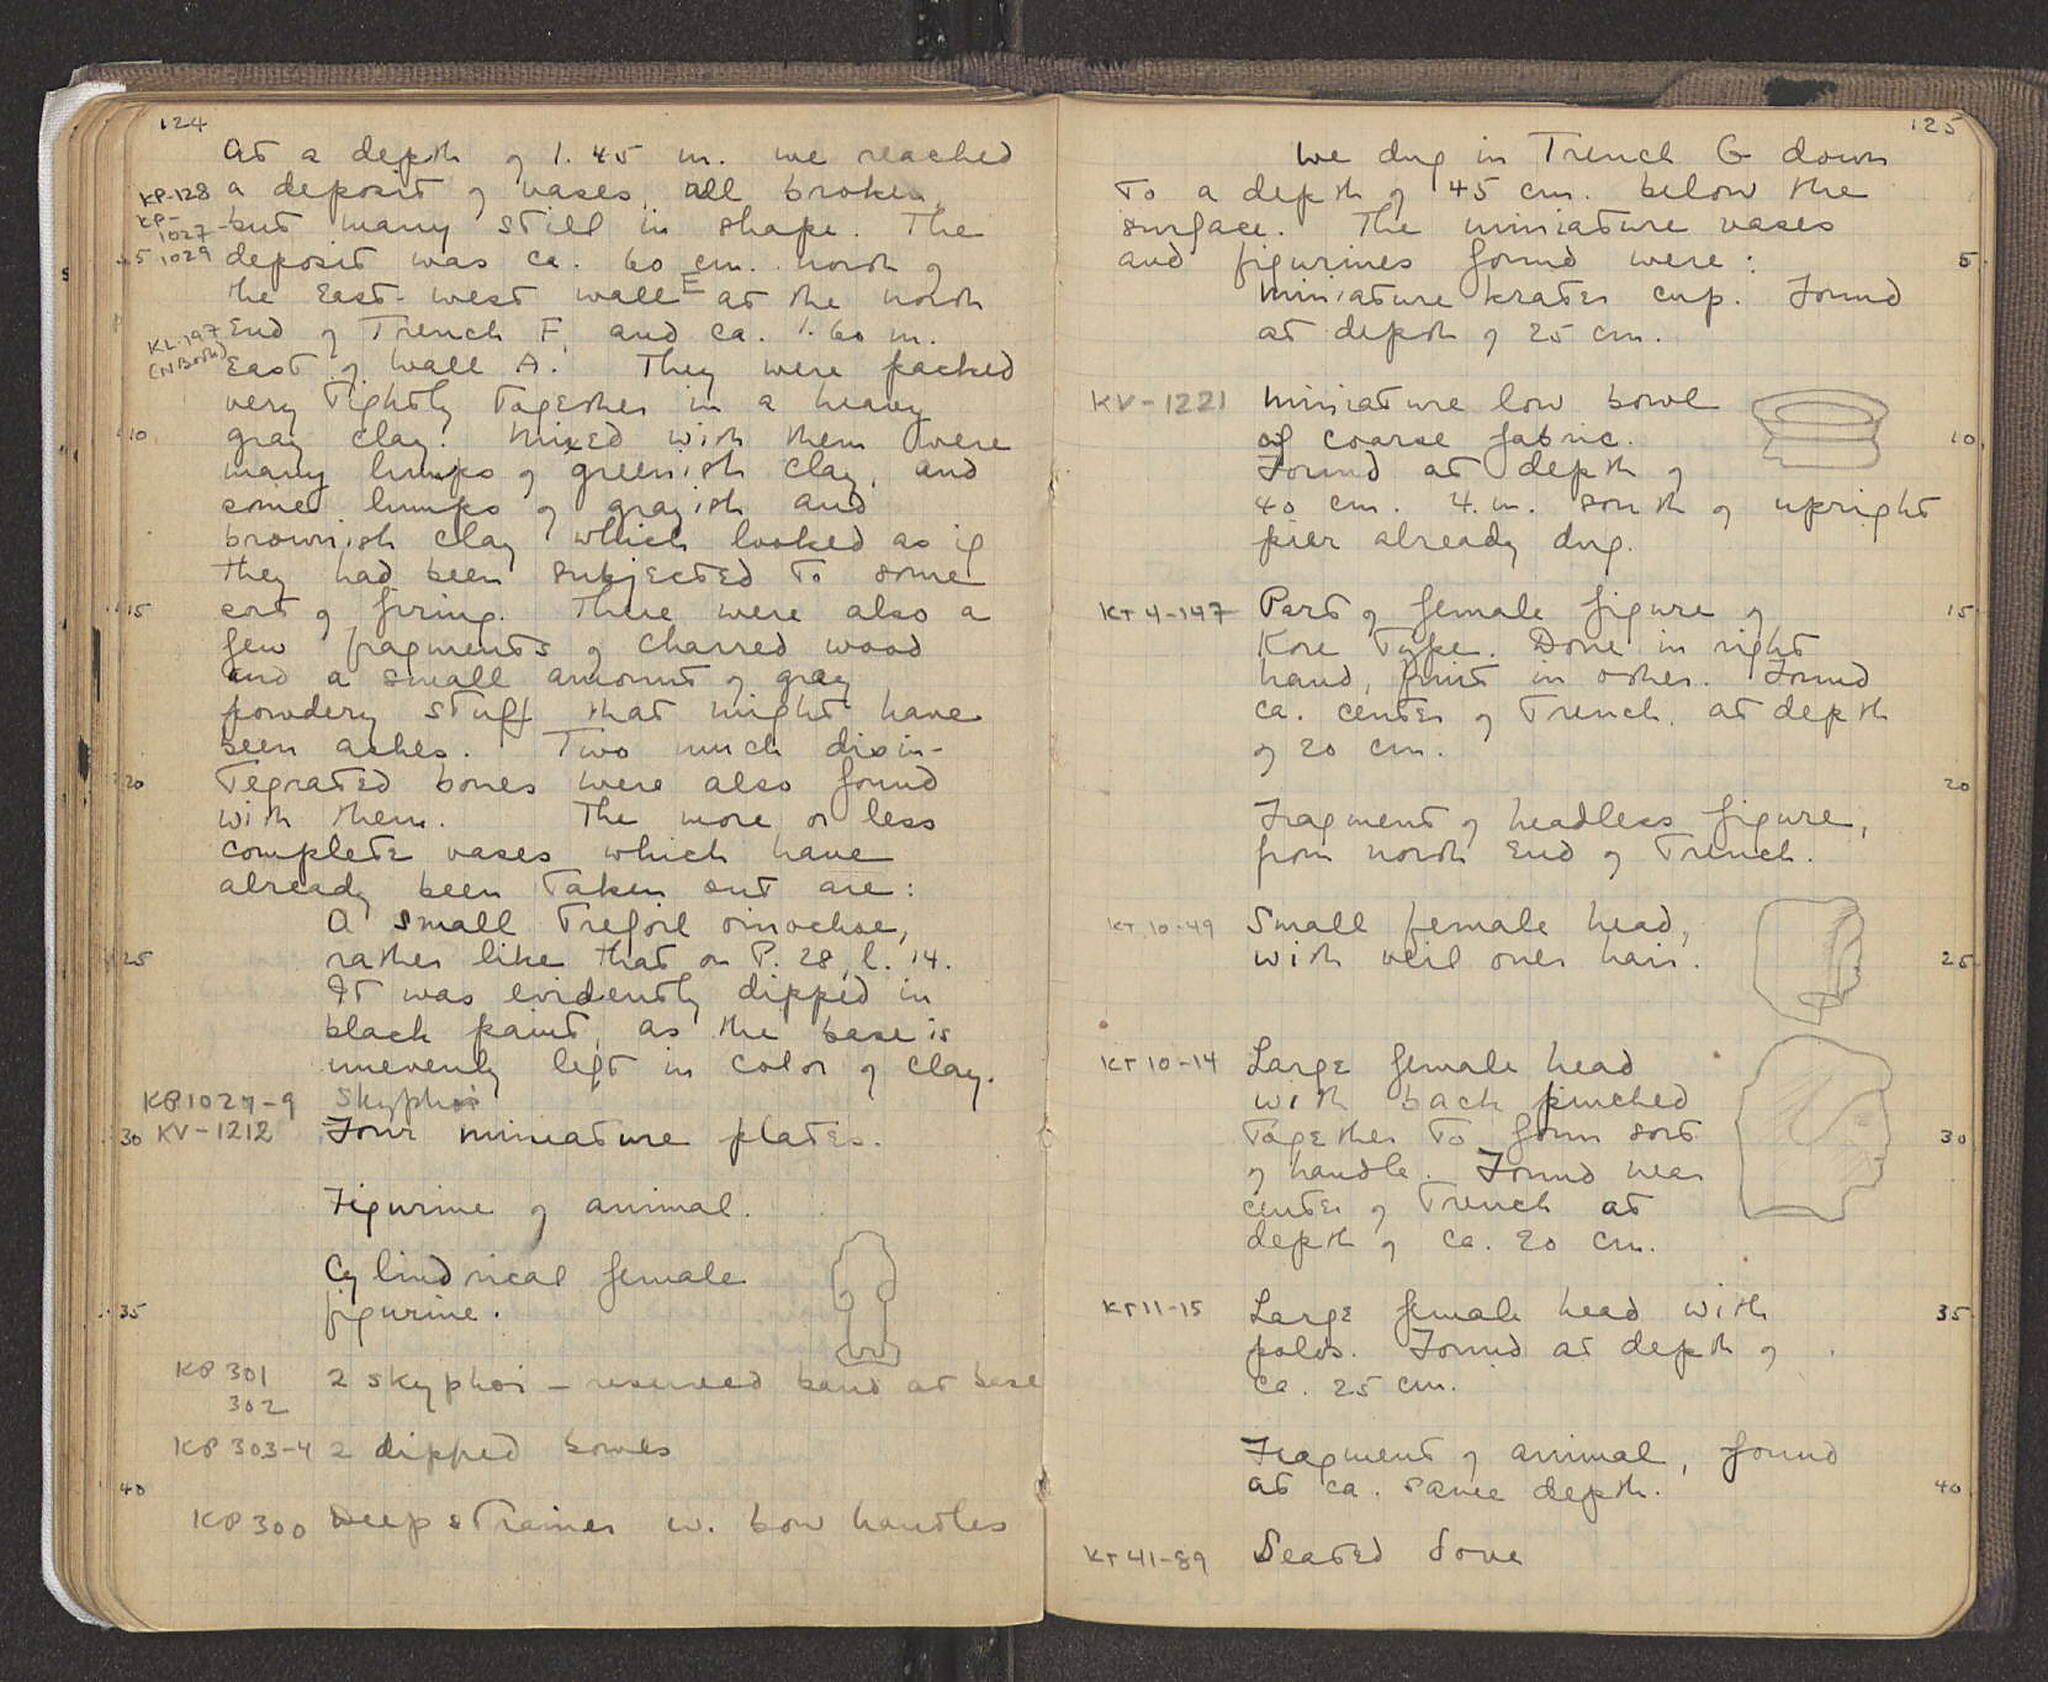 124
At a depth of 1.45 m. we reached
KP-128 a deposit of vases, all broken,
KP-1027- but many still in shape. The
5 1029 deposit was ca. 60 cm. north of
the East-west wall E at the north
End of Trench F, and ca. 1.60 m.
KL-197
(N Both) East of wall A. They were packed
very tightly together in a heavy
10 gray clay. Mixed with them were
many lumps of greenish clay, and
some lumps of grayish and
brownish clay which looked as if
they had been subjected to some
15 sort of firing. There were also a
few fragments of charred wood
and a small amount of gray
powdery stuff that might have
been ashes. Two much disin-
20 tegrated bones were also found
with them. The more or less
complete vases which have
already been taken out are:
A small trefoil oinochoe,
25 rather like that on P. 28, l. 14.
It was evidently dipped in
black paint, as the base is
unevenly left in color of clay.
KP1027-9 Skyphoi
30 KV-1212 Four miniature plates.
Figurine of animal.
Cylindrical female
35 figurine.
KP 301 2 skyphoi - reserved band at base
302
KP 303-4 2 dipped bowls
40
KP 300 Deep strainer w. bow handles
125
We dug in Trench G down
to a depth of 45 cm. below the
surface. The miniature vases
and figurines found were: 5
Miniature krater cup. Found
at depth of 25 cm.
KV-1221 Miniature low bowl
of coarse fabric. 10
Found at depth of
40 cm. 4.m. south of upright
pier already dug.
KT 4-147 Part of female figure of 15
Kore type. Dove in right
hand, fruit in other. Found
ca. center of Trench, at depth
of 20 cm.
20
Fragment of headless figure,
from north End of Trench.
KT 10-49 Small female head,
with veil over hair. 25
KT 10-14 Large female head
with back pinched
together to form sort 30
of handle. Found near
center of Trench at
depth of ca. 20 cm.
KT 11-15 Large female head with 35
polos. Found at depth of
ca. 25 cm.
Fragment of animal, found
at ca. same depth. 40
KT 41-89 Seated dove